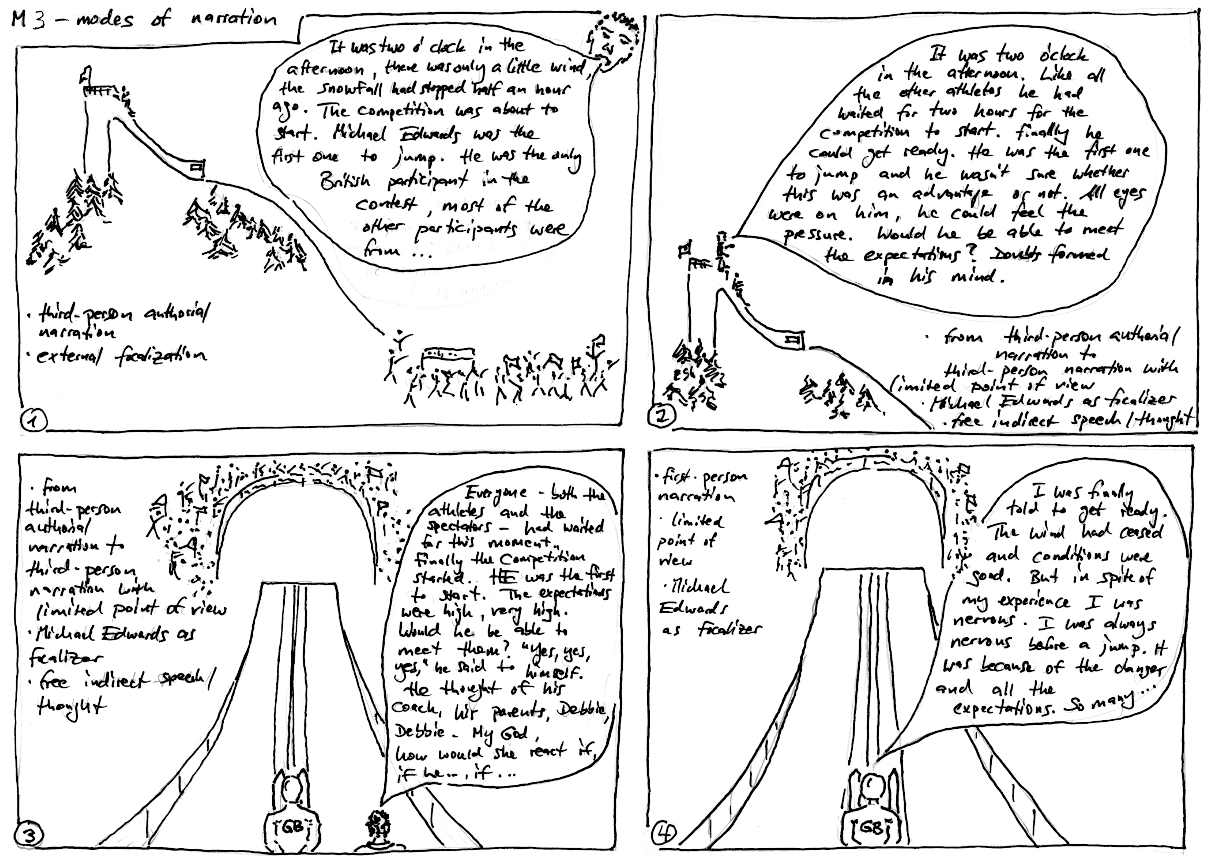 M3 - modes of narration
It was two o'clock in the
afternoon, there was only a little wind,
the snowfall had stopped half an hour
ago. The competition was about to
start. Michael Edwards was the
first one to jump. He was the only
British participant in the
contest, most of the
other participants were
from ...
· third-person authorial
narration
· external focalization
1
It was two o'clock
in the afternoon. Like all
the other athletes he had
waited for two hours for the
competition to start. Finally he
could get ready. He was the first one
to jump and he wasn't sure whether
this was an advantage or not. All eyes
were on him, he could feel the
pressure. Would he be able to meet
the expectations? Doubts formed
in his mind.
· from third-person authorial
narration to
third-person narration with
limited point of view
· Michael Edwards as focalizer
· free indirect speech/thought
2
· from
third-person
authorial
narration to
third-person
narration with
limited point of view
· Michael Edwards as
focalizer
· free indirect speech/
thought
Everyone - both the
athletes and the
spectators - had waited
for this moment.
Finally the Competition
started. HE was the first
to start. The expectations
were high, very high.
Would he be able to
meet them? "Yes, yes,
yes," he said to himself.
He thought of his
coach, his parents, Debbie,
Debbie - My God,
how would she react if,
if he..., if...
GB
3
· first-person
narration
· limited
point of
view
· Michael
Edwards
as focalizer
I was finally
told to get ready.
The wind had ceased
and conditions were
good. But in spite of
my experience I was
nervous. I was always
nervous before a jump. It
was because of the danger
and all the
expectations. So many ...
GB
4